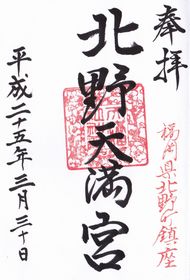 奉拝
福岡県北野町鎮座
北野天満宮
平成二十五年三月三十日